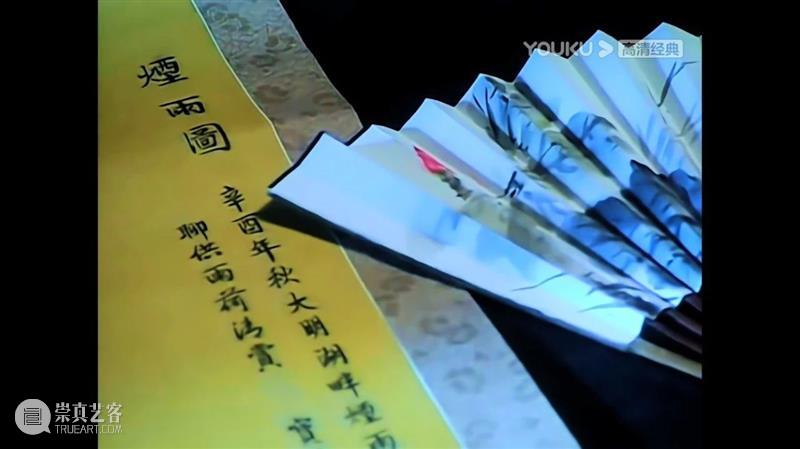 YOUKU 高清经典
煙雨圖
辛酉年秋大明湖畔煙雨
聊供雨荷清賞
崇真艺客
TRUEART.COM